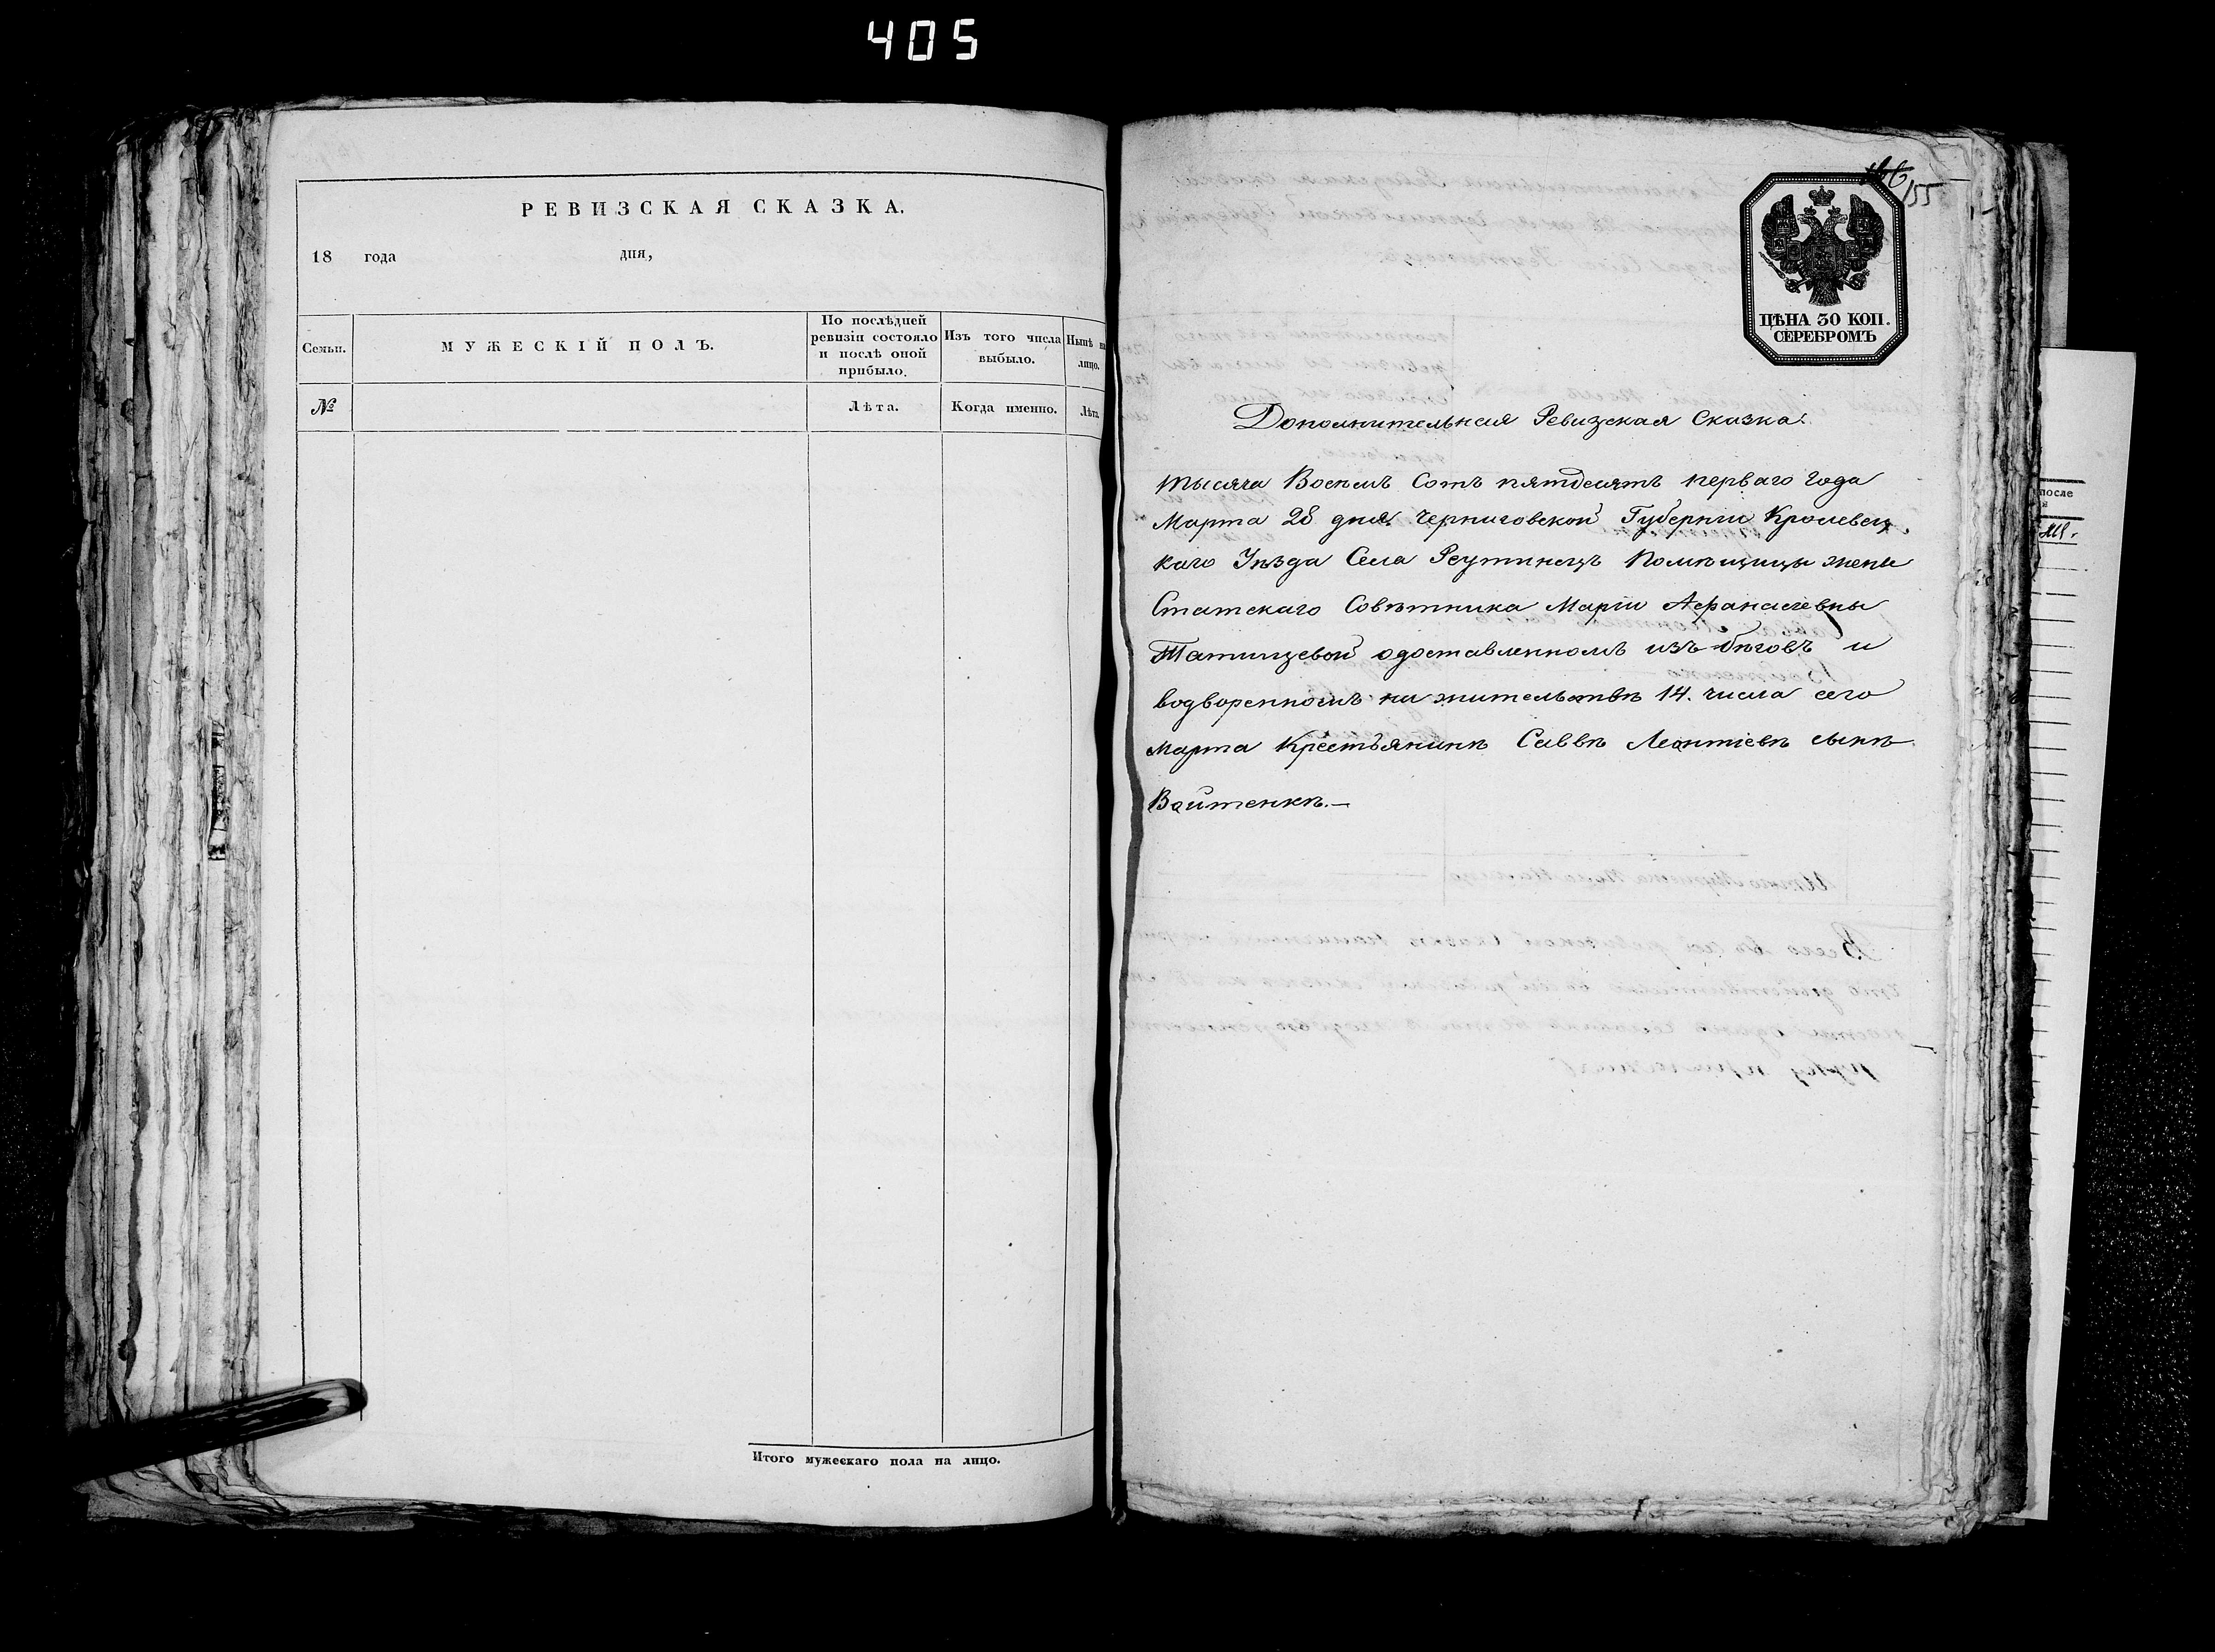 405
РЕВИЗСКАЯ СКАЗКА.
18 года дня,
Семьи.
МУЖЕСКІЙ ПОЛЪ.
По послѣдней
ревизіи состояло
и послѣ оной
прибыло.
Изъ того числа
выбыло.
Нынѣ на
лицо.
№
Лѣта.
Когда именно.
Лѣта.
Итого мужескаго пола на лицо.
155
ЦѢНА 30 КОП.
СЕРЕБРОМЪ
Дополнительная Ревизская Сказка.
тысяча Восемь Сотъ пятдесятъ перваго года
Марта 28 дня. Черниговской Губерніи Кролевец
каго Уѣзда Села Реутинецъ Помѣщицы жены
Статскаго Совѣтника Маріи Афанасіевны
Татищевой одоставленномъ изъ бѣговъ и
водворенномъ на жительствѣ 14. числа сего
Марта Крестьянинѣ Саввѣ Леонтіевѣ сынѣ
Войтенкѣ.—
после